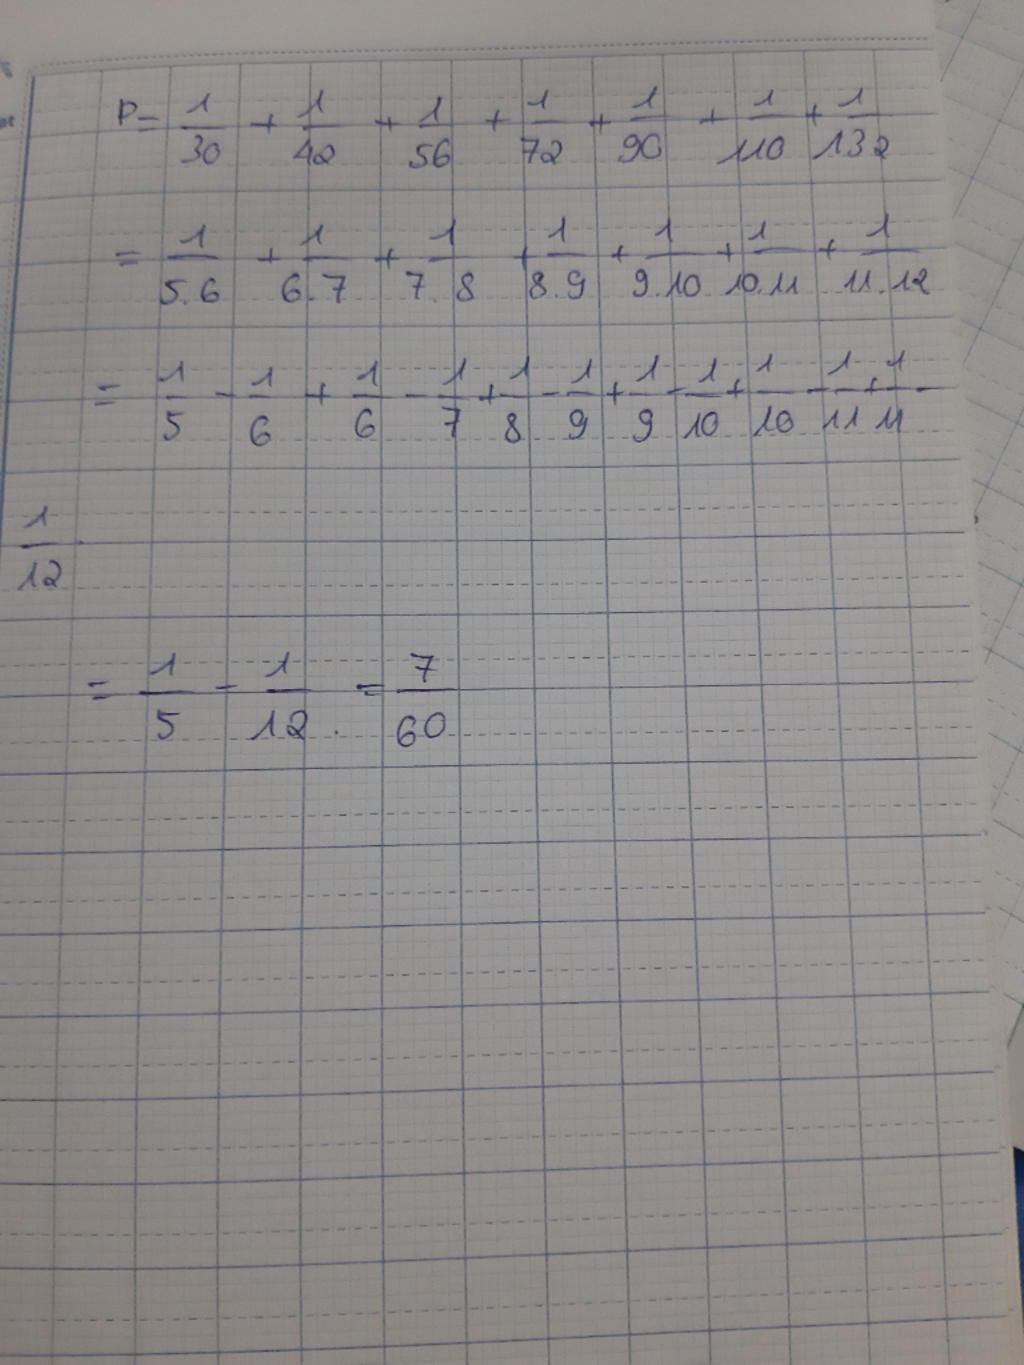 P = 1/30 + 1/42 + 1/56 + 1/72 + 1/90 + 1/110 + 1/132
= 1/5.6 + 1/6.7 + 1/7.8 + 1/8.9 + 1/9.10 + 1/10.11 + 1/11.12
= 1/5 - 1/6 + 1/6 - 1/7 + 1/8 - 1/9 + 1/9 - 1/10 + 1/10 - 1/11 + 1/11 -
1/12
= 1/5 - 1/12 . = 7/60